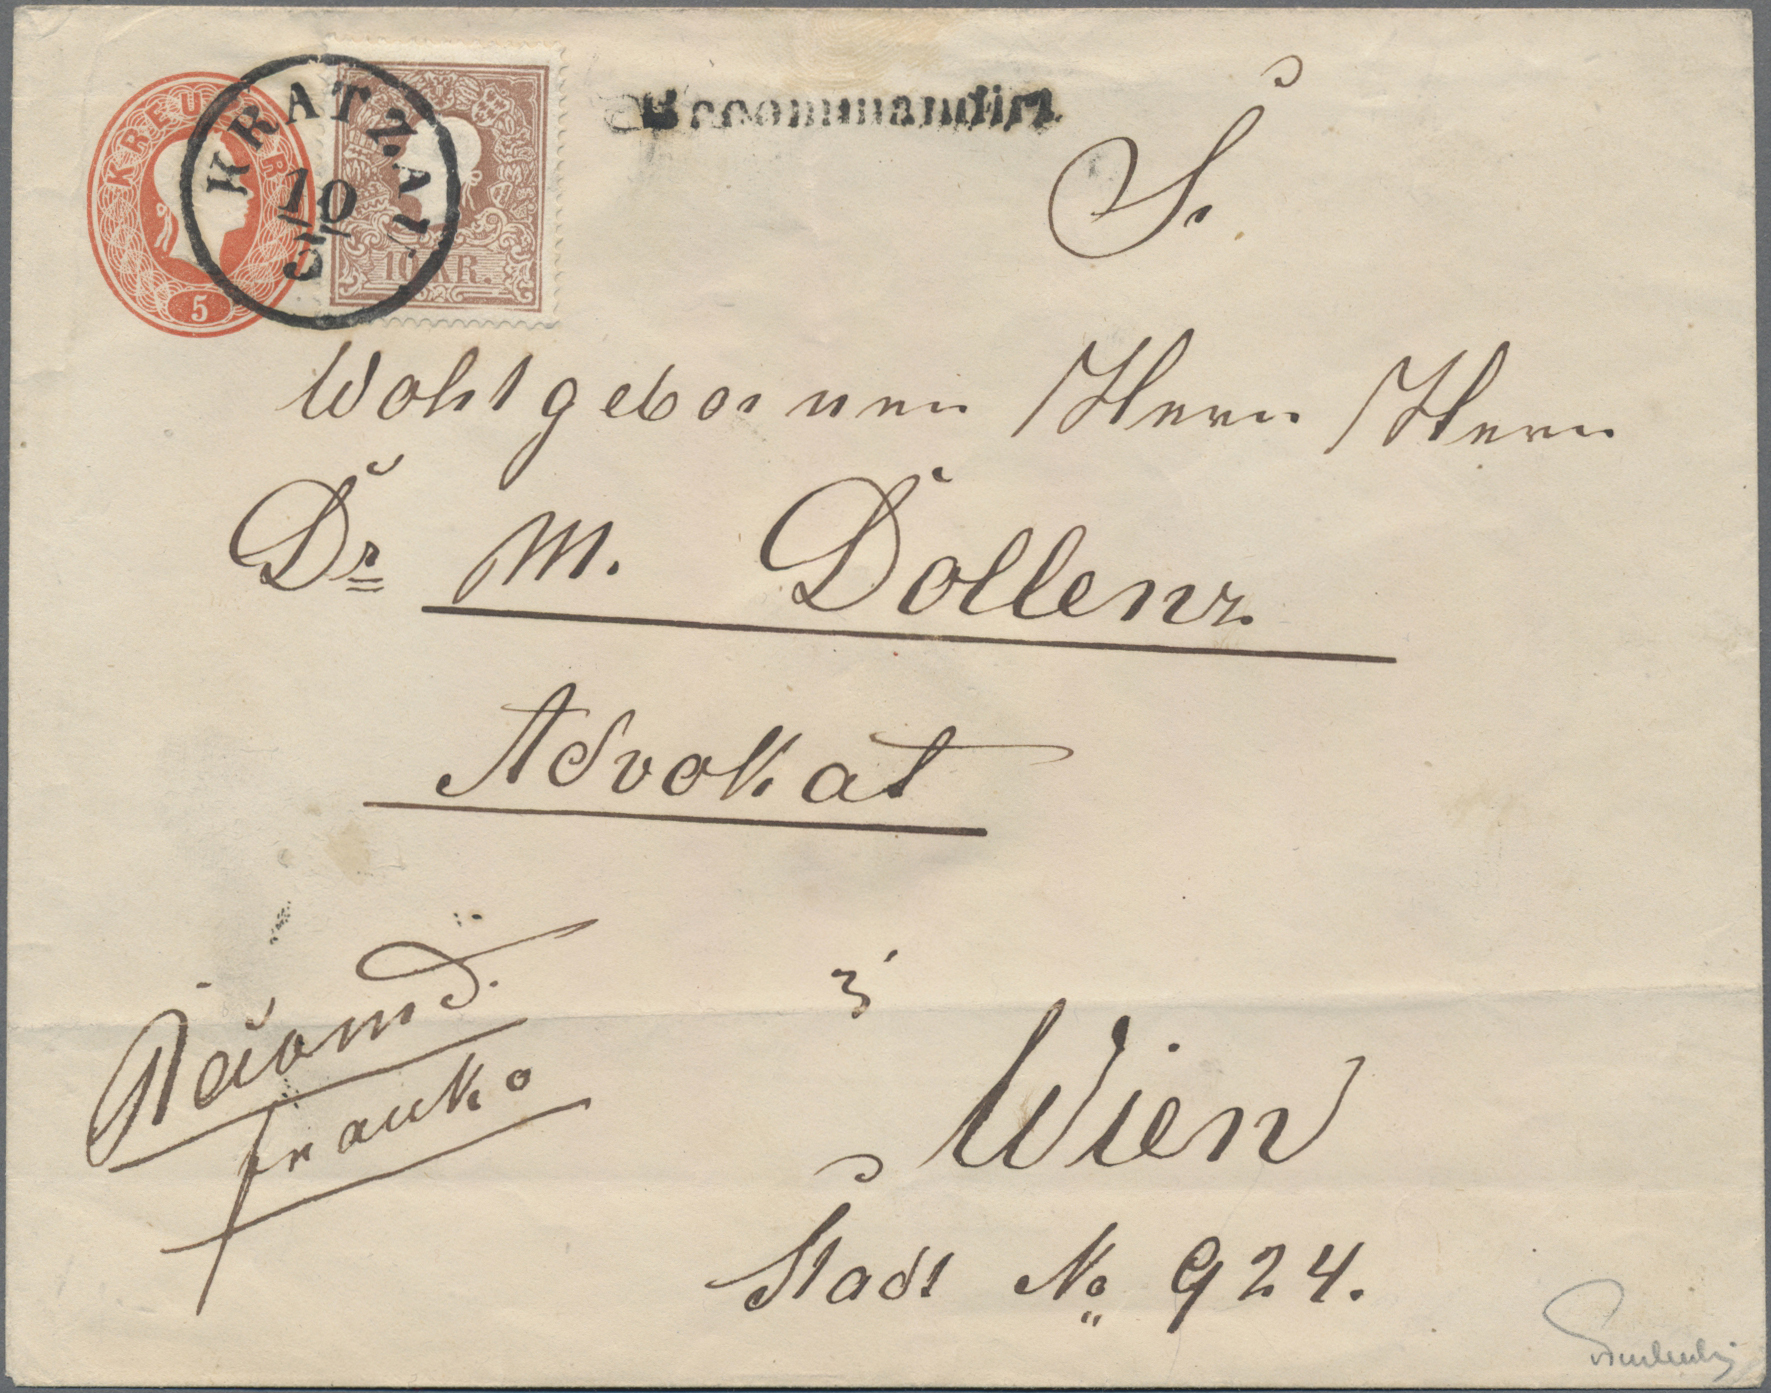 KREUZER
5
KRATZAU
10
3
10 KR.
Recommandirt
Sr
Wohlgebornen Herrn Herrn
Dr M. Dollenz.
Advokat
Recomd.
franko
Wien
Stadt No 924.